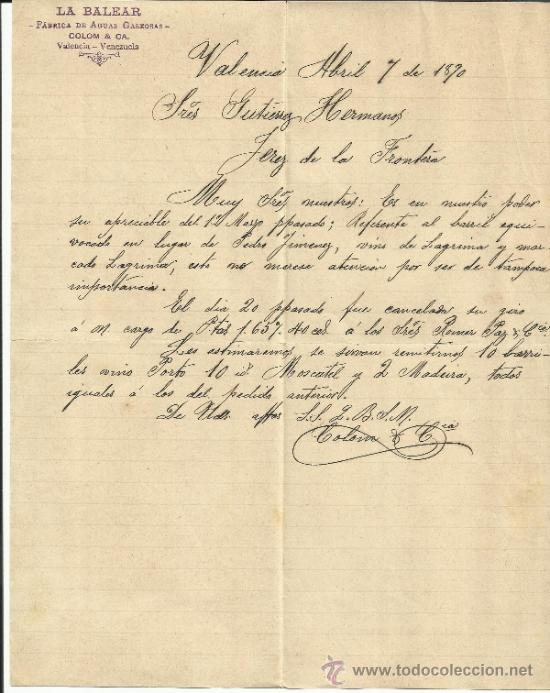 LA BALEAR
- FÁBRICA DE AGUAS GASEOSAS -
COLOM & CA.
Valencia - Venezuela
Valencia Abril 7 de 1890
Sres Gutierrez Hermanos
Jerez de la Frontera
Muy Sres nuestros: Es en nuestro poder
su apreciable del 12 Marzo ppasado; Referente al barril equi-
vocado en lugar de Pedro Jimenez, vino de Lagrima y mar-
cado Lagrima, esto no merese atencion por ser de tan poca
importancia.
El dia 20 ppasado fue cancelado su giro
á n. cargo de Ptas 1.637. 40 ces á los Sres Romer Paz & Cia
Les estimaremos se sirvan remitirnos 10 barri-
les vino Porto 10 id. Moscatel y 2 Madeira, todos
iguales á los del pedido anterior.
De Uds. affos S.S. Q.B.S.M.
Colom & Cia
todocoleccion
www.todocoleccion.net